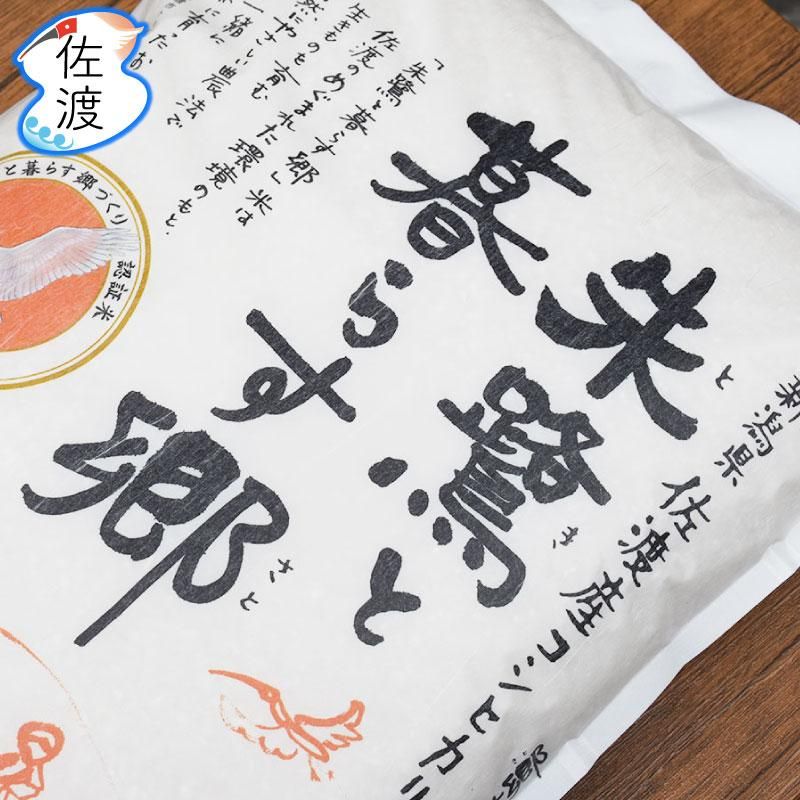 佐渡
新潟県佐渡産コシヒカリ
朱鷺と
とき
暮らす
郷
さと
「朱鷺と暮らす郷」米は
佐渡のめぐまれた環境のもと、
生きものを育む
農法で
と暮らす郷づくり
認証米